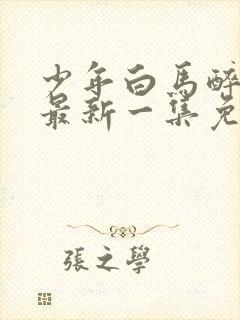 少年白馬醉
最新一集免
張之學